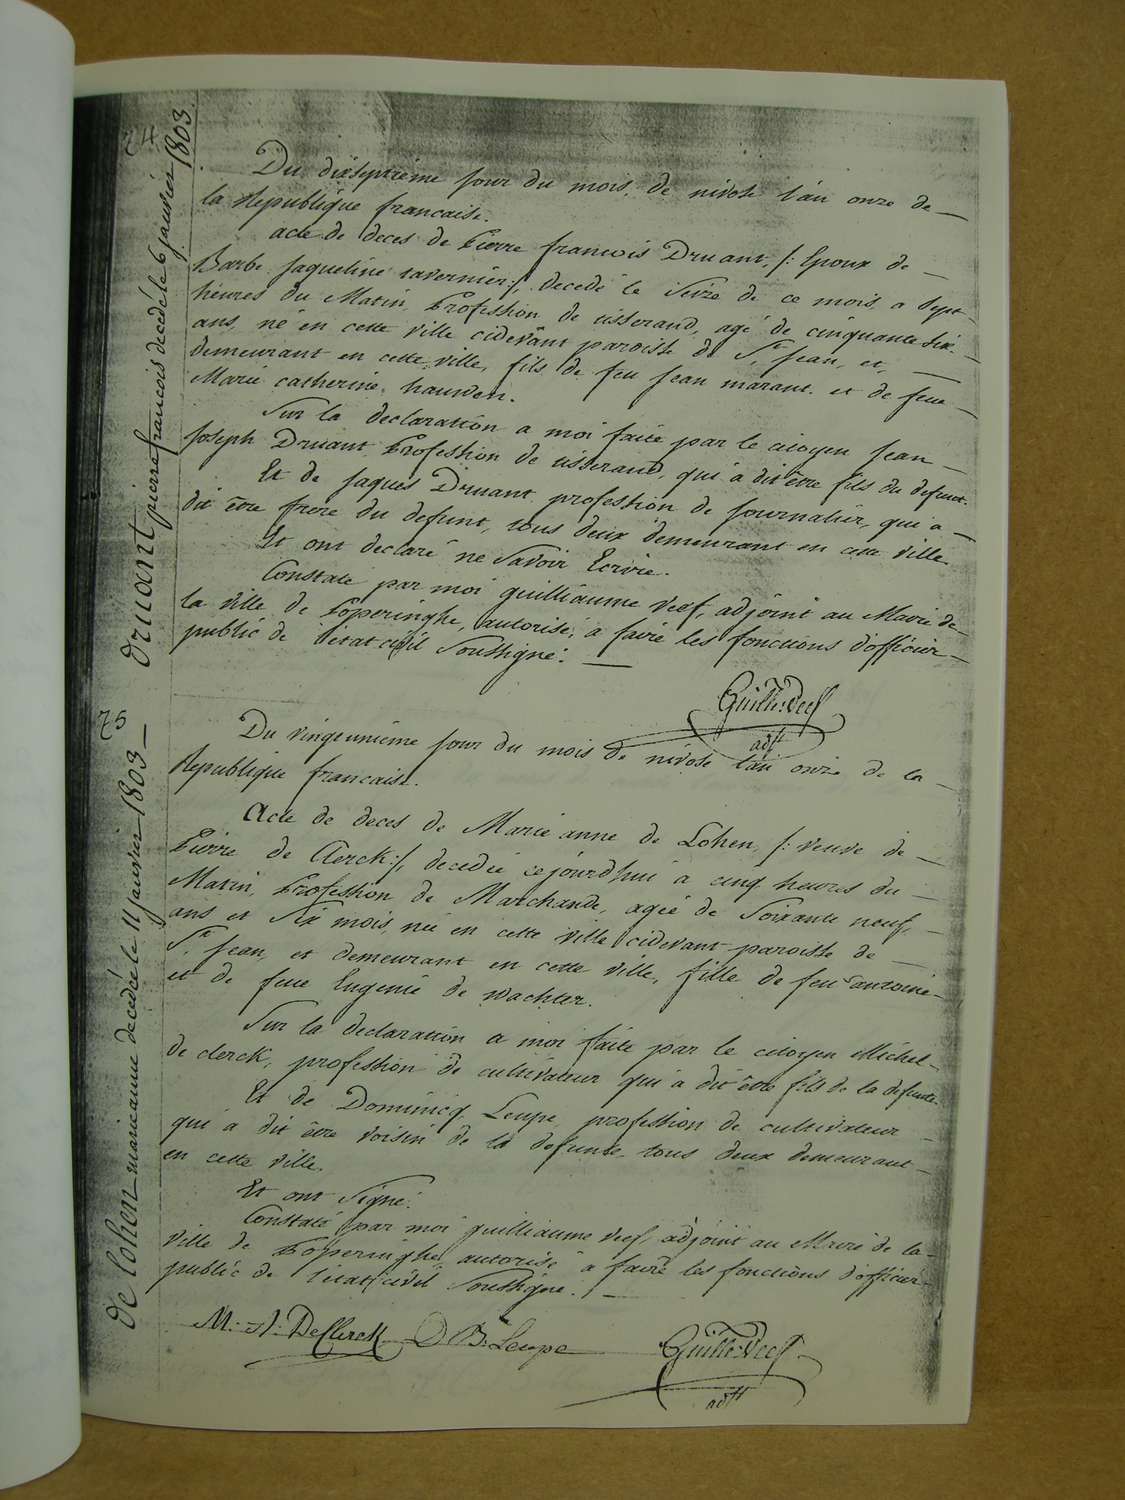 74
Druant pierre francois decedé le 6 janvier 1803.
Du dixseptieme jour du mois de nivose l'an onze de
la Republique francaise.
acte de deces de Pierre francois Druant, /: Epoux de
Barbe Jaqueline tavernier :/, decedé le Seize de ce mois, a sept
heures du Matin, Profession de tisserand, agé de cinquante six
ans, né en cette ville cidevant paroisse de St. Jean, et,
demeurant en cette ville, fils de feu Jean marant et de feue
Marie catherine
Sur la declaration a moi faite par le citoyen Jean
Joseph Druant, Profession de tisserand, qui a dit être fils du defunt.
Et de Jaques Druant profession de journalier, qui a
dit être frere du defunt, tous deux demeurant en cette ville.
Et ont declaré ne Savoir Ecrire.
Constaté par moi guilliaume Veef, adjoint au Maire de
la ville de Poperinghe, autorisé, a faire les fonctions d'officier
public de l'etat civil Soussigné.
Guille: Veef
adjt
75
de Lohen marieanne decedée le 11 janvier 1803
Du vingtunieme jour du mois de nivose l'an onze de la
Republique francaise.
Acte de deces de Marie anne de Lohen, /: veuve de
Pierre de Clerck :/, decedée cejourd'hui à cinq heures du
Matin, Profession de Marchande, agée de Soixante neuf,
ans et Six mois, née en cette ville cidevant paroisse de
St. Jean, et demeurant en cette ville, fille de feu antoine
et de feue Eugenie de Wachter.
Sur la declaration a moi faite par le citoyen Michel
de clerck, profession de cultivateur qui a dit être fils de la defunte.
Et de Dominicq Leupe profession de cultivateur
qui a dit être voisin de la defunte tous deux demeurant
en cette ville.
Et ont Signé.
Constaté par moi guilliaume veef, adjoint au Maire de la
ville de Poperinghe, autorisé a faire les fonctions d'officier
public de l'etat civil Soussigné.
M: J: DeClerck D B: Leupe
Guille: Veef
adjt